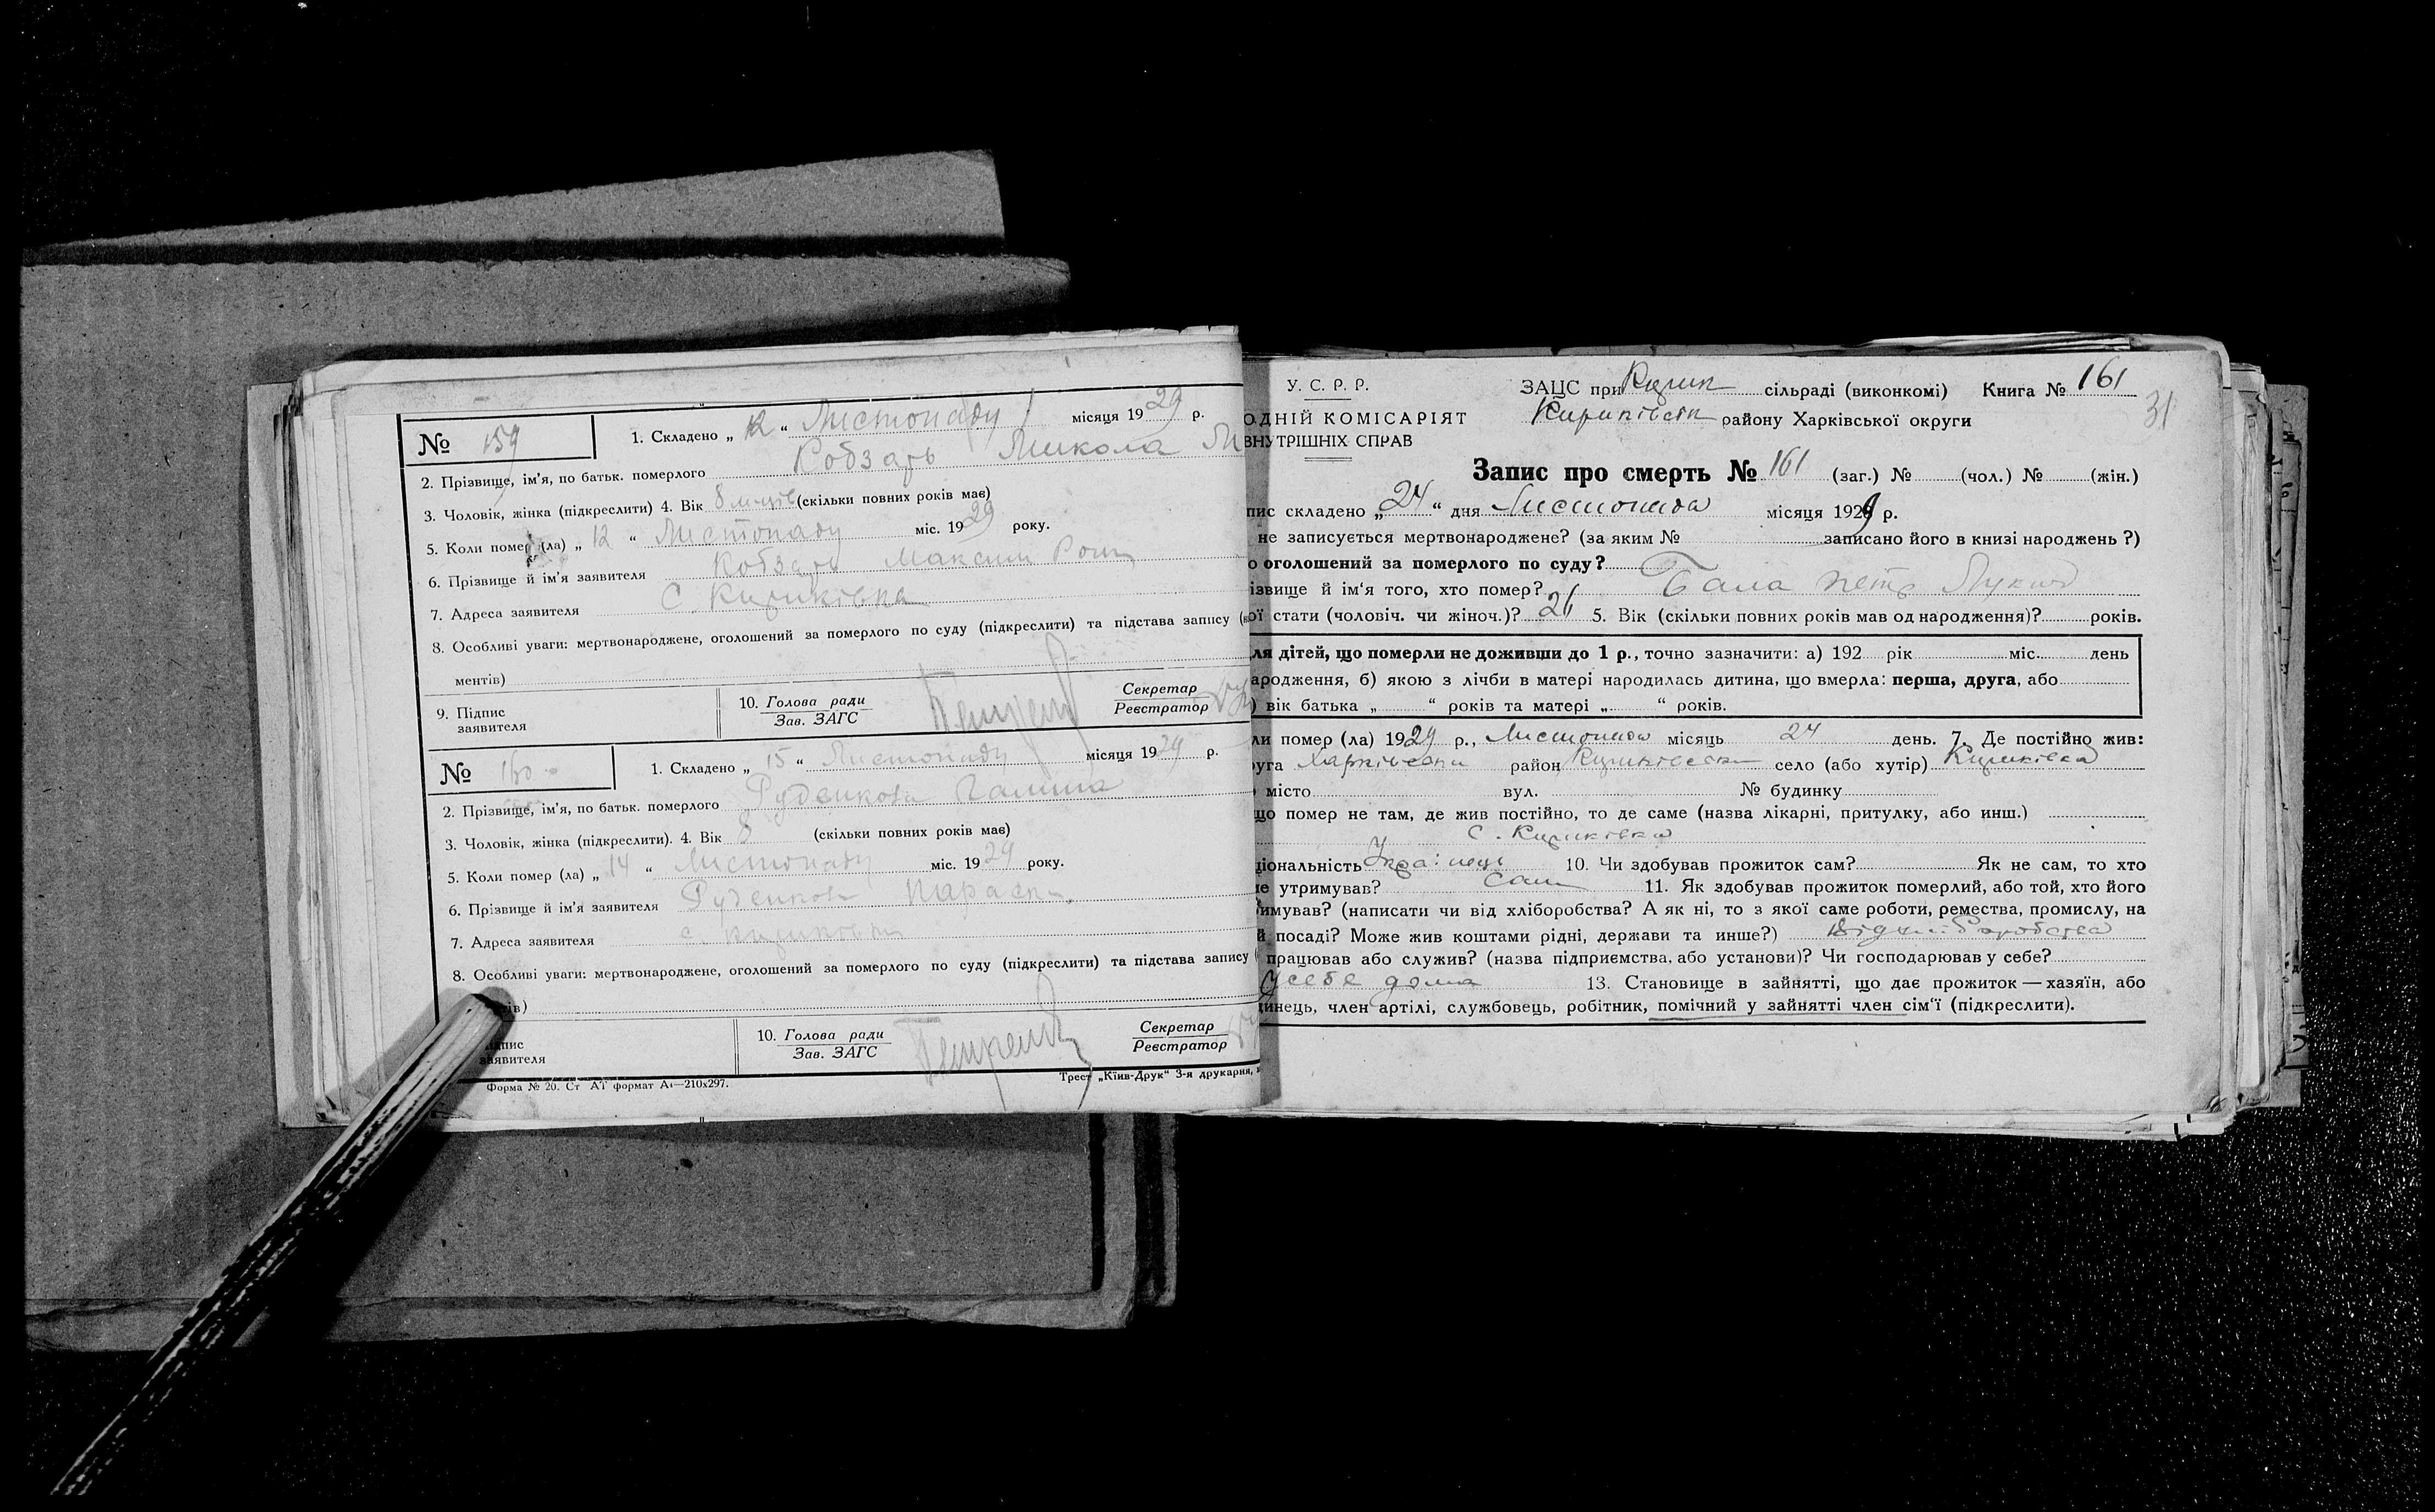 № 159
1. Складено „ 12 “ Листопаду місяця 1929 р.
2. Прізвище, ім’я, по батьк. померлого Кобзарь Микола М
3. Чоловік, жінка (підкреслити) 4. Вік 8 міців (скільки повних років має)
5. Коли помер (ла) „ 12 “ Листопаду міс. 1929 року.
6. Прізвище й ім’я заявителя Кобзарь Максим
7. Адреса заявителя С. Кириківка
8. Особливі уваги: мертвонароджене, оголошений за померлого по суду (підкреслити) та підстава запису
ментів)
9. Підпис заявителя
10. Голова ради
Зав. ЗАГС
Секретар
Реєстратор
№ 160
1. Складено „ 15 “ Листопаду місяця 1929 р.
2. Прізвище, ім’я, по батьк. померлого Руденкова Галина
3. Чоловік, жінка (підкреслити). 4. Вік 8 (скільки повних років має)
5. Коли помер (ла) „ 14 “ Листопаду міс. 1929 року.
6. Прізвище й ім’я заявителя Руденкова Параск
7. Адреса заявителя с. Кириковка
8. Особливі уваги: мертвонароджене, оголошений за померлого по суду (підкреслити) та підстава запису (
ів)
підпис
заявителя
10. Голова ради
Зав. ЗАГС
Секретар
Реєстратор
Форма № 20. Ст АТ формат А4—210х297.
Трест „Київ-Друк“ 3-я друкарня,
У. С. Р. Р.
ОДНІЙ КОМІСАРІЯТ
ВНУТРІШНІХ СПРАВ
ЗАЦС при Кирик сільраді (виконкомі) Книга № 161
31
Кириківськ району Харківської округи
Запис про смерть № 161 (заг.) № (чол.) № (жін.)
пис складено „ 24 “ дня Листопада місяця 1929 р.
не записується мертвонароджене? (за яким № записано його в книзі народжень ?)
о оголошений за померлого по суду?
ізвище й ім’я того, хто помер? Бала Петр Лукич
ої стати (чоловіч. чи жіноч.)? 21 5. Вік (скільки повних років мав од народження)? років.
ля дітей, що померли не доживши до 1 р., точно зазначити: а) 192 рік міс. день
ародження, б) якою з лічби в матері народилась дитина, що вмерла: перша, друга, або
) вік батька „ “ років та матері „ “ років.
ли помер (ла) 1929 р., Листопада місяць 24 день. 7. Де постійно жив:
уга Харківська район Кириківськ село (або хутір) Кириківка
місто вул. № будинку
що помер не там, де жив постійно, то де саме (назва лікарні, притулку, або инш.)
с. Кириківка
ціональність Українець 10. Чи здобував прожиток сам? Як не сам, то хто
е утримував? Сам 11. Як здобував прожиток померлий, або той, хто його
имував? (написати чи від хліборобства? А як ні, то з якої саме роботи, ремества, промислу, на
й посаді? Може жив коштами рідні, держави та инше?) Від хліборобства
працював або служив? (назва підприємства, або установи)? Чи господарював у себе?
У себе дома 13. Становище в зайнятті, що дає прожиток — хазяїн, або
инець, член артілі, службовець, робітник, помічний у зайнятті член сім’ї (підкреслити).